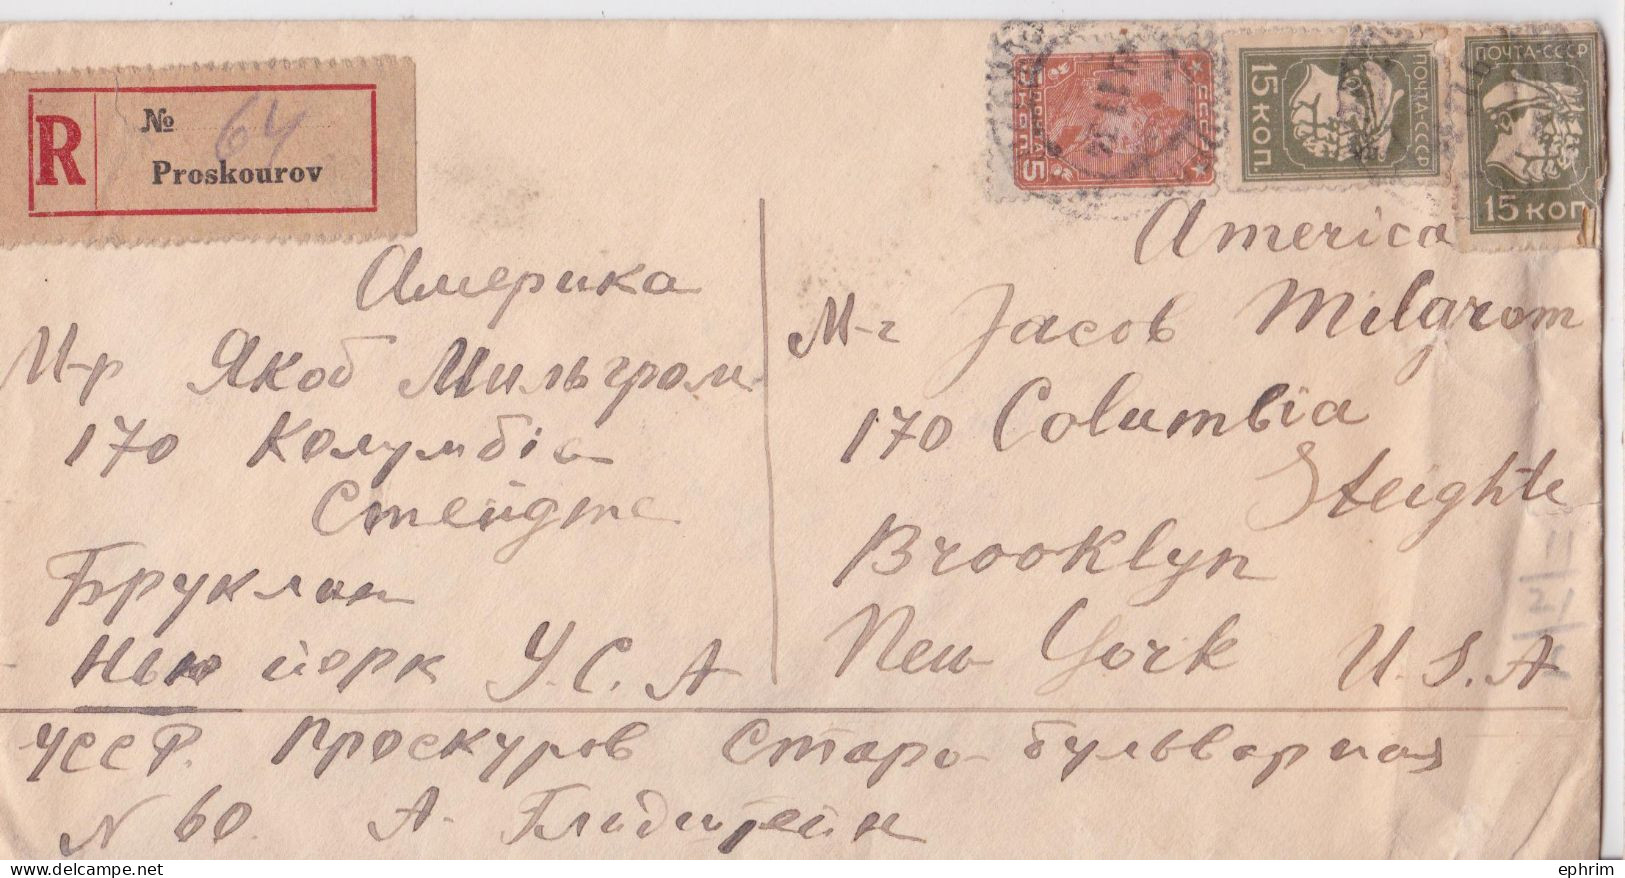 R
№ 64
Proskourov
5 КОП. 5
СССР
15 КОП.
ПОЧТА-СССР
ПОЧТА-СССР
15 КОП
Америка
М-р Якоб Мильгром
170 Колумбіа
Стейдте
Бруклин
Нью йорк У.С.А
America
M-r Jacob Milgrom
170 Columbia
Steighte
Brooklyn
New York U.S.A
УССР. Проскуров Старо-бульварная
N 60. А. Глидштейн
ephrim